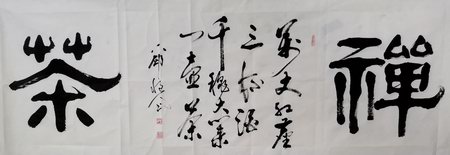 禪
萬丈紅塵
三杯酒
千秋大業
一壺茶
茶